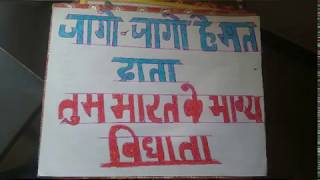 जागो-जागो हे मत
दाता
तुम भारत के भाग्य
बिधाता